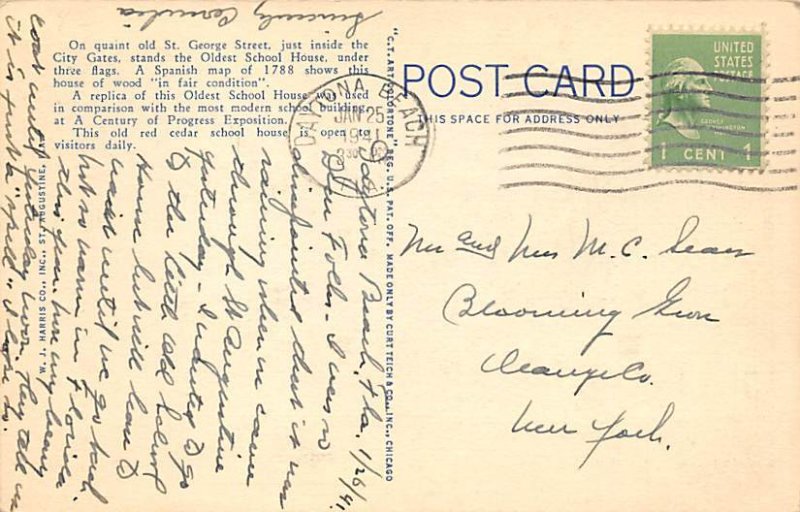 On quaint old St. George Street, just inside the
City Gates, stands the Oldest School House, under
three flags. A Spanish map of 1788 shows this
house of wood "in fair condition".
A replica of this Oldest School House was used
in comparison with the most modern school building
at A Century of Progress Exposition.
This old red cedar school house is open to
visitors daily.
W. J. HARRIS CO., INC., ST. AUGUSTINE, FLA.
"C.T. ART-COLORTONE" REG. U.S. PAT. OFF. MADE ONLY BY CURT TEICH & CO., INC., CHICAGO
POST CARD
THIS SPACE FOR ADDRESS ONLY
DAYTONA BEACH
JAN 25
UNITED
STATES
POSTAGE
GEORGE
WASHINGTON
1 CENT 1
Mr and Mrs M. C. Sears
Blooming Grove
Orange Co.
New York.
Daytona Beach, Fla. 1/26/41
Dear Folks - I was so
disappointed that it was
raining when we came
through St Augustine
yesterday - I wanted to go
to the little old School
House but will have to
wait until we go back
Not so warm in Florida
this year. Wore my heavy
coat until yesterday noon. They tell us
it is just a "spell" I hope so.
Sincerely Cornelia